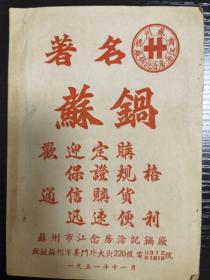 著名
蘇鍋
歡迎定購
保證規格
通信購貨
迅速便利
蘇州市江念房洽記鍋廠
廠址蘇州市婁門外大街220號電
一九五一年十一月